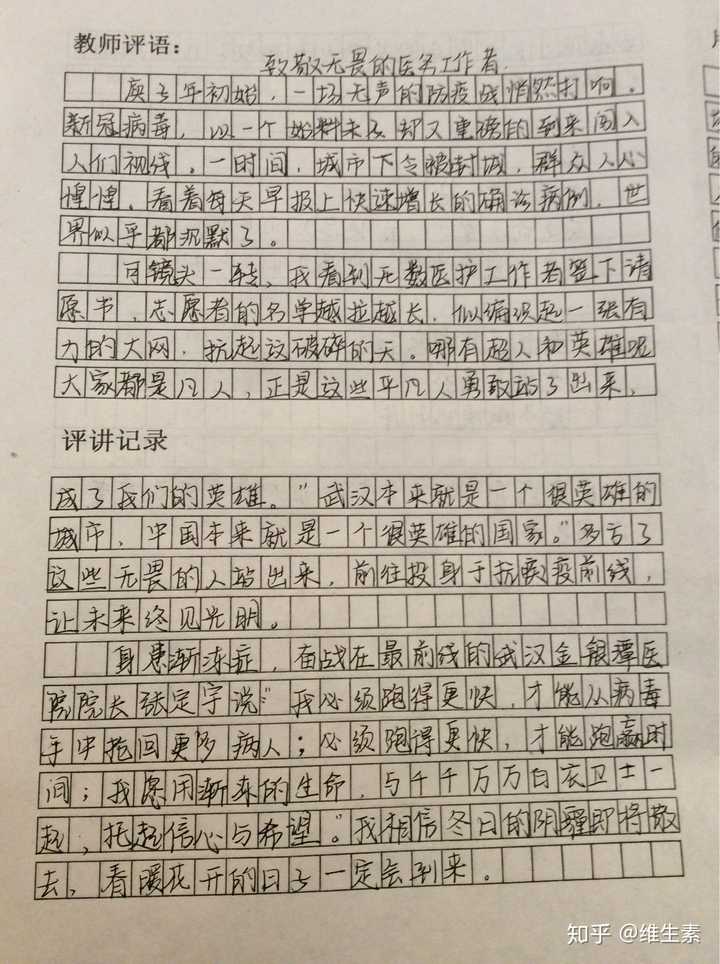 教师评语：
致敬无畏的医务工作者
庚子年初始，一场无声的防疫战悄然打响。
新冠病毒，以一个始料未及却又重磅的到来闯入
人们视线。一时间，城市下令被封城，群众人心
惶惶。看着每天早报上快速增长的确诊病例，世
界似乎都沉默了。
可镜头一转，我看到无数医护工作者签下请
愿书，志愿者的名字越拉越长，似编织起一张有
力的大网，抗起这破碎的天。哪有超人和英雄呢
大家都是凡人，正是这些平凡人勇敢站了出来，
评讲记录
成了我们的英雄。“武汉本来就是一个很英雄的
城市，中国本来就是一个很英雄的国家。”多亏了
这些无畏的人站出来，前往投身于抗疫前线，
让未来终见光明。
身患渐冻症，奋战在最前线的武汉金银潭医
院院长张定宇说：“我必须跑得更快，才能从病毒
手中抢回更多病人；必须跑得更快，才能跑赢时
间；我愿用渐冻的生命，与千千万万白衣卫士一
起，托起信心与希望。”我相信冬日的阴霾即将散
去，春暖花开的日子一定会到来。
知乎 @维生素